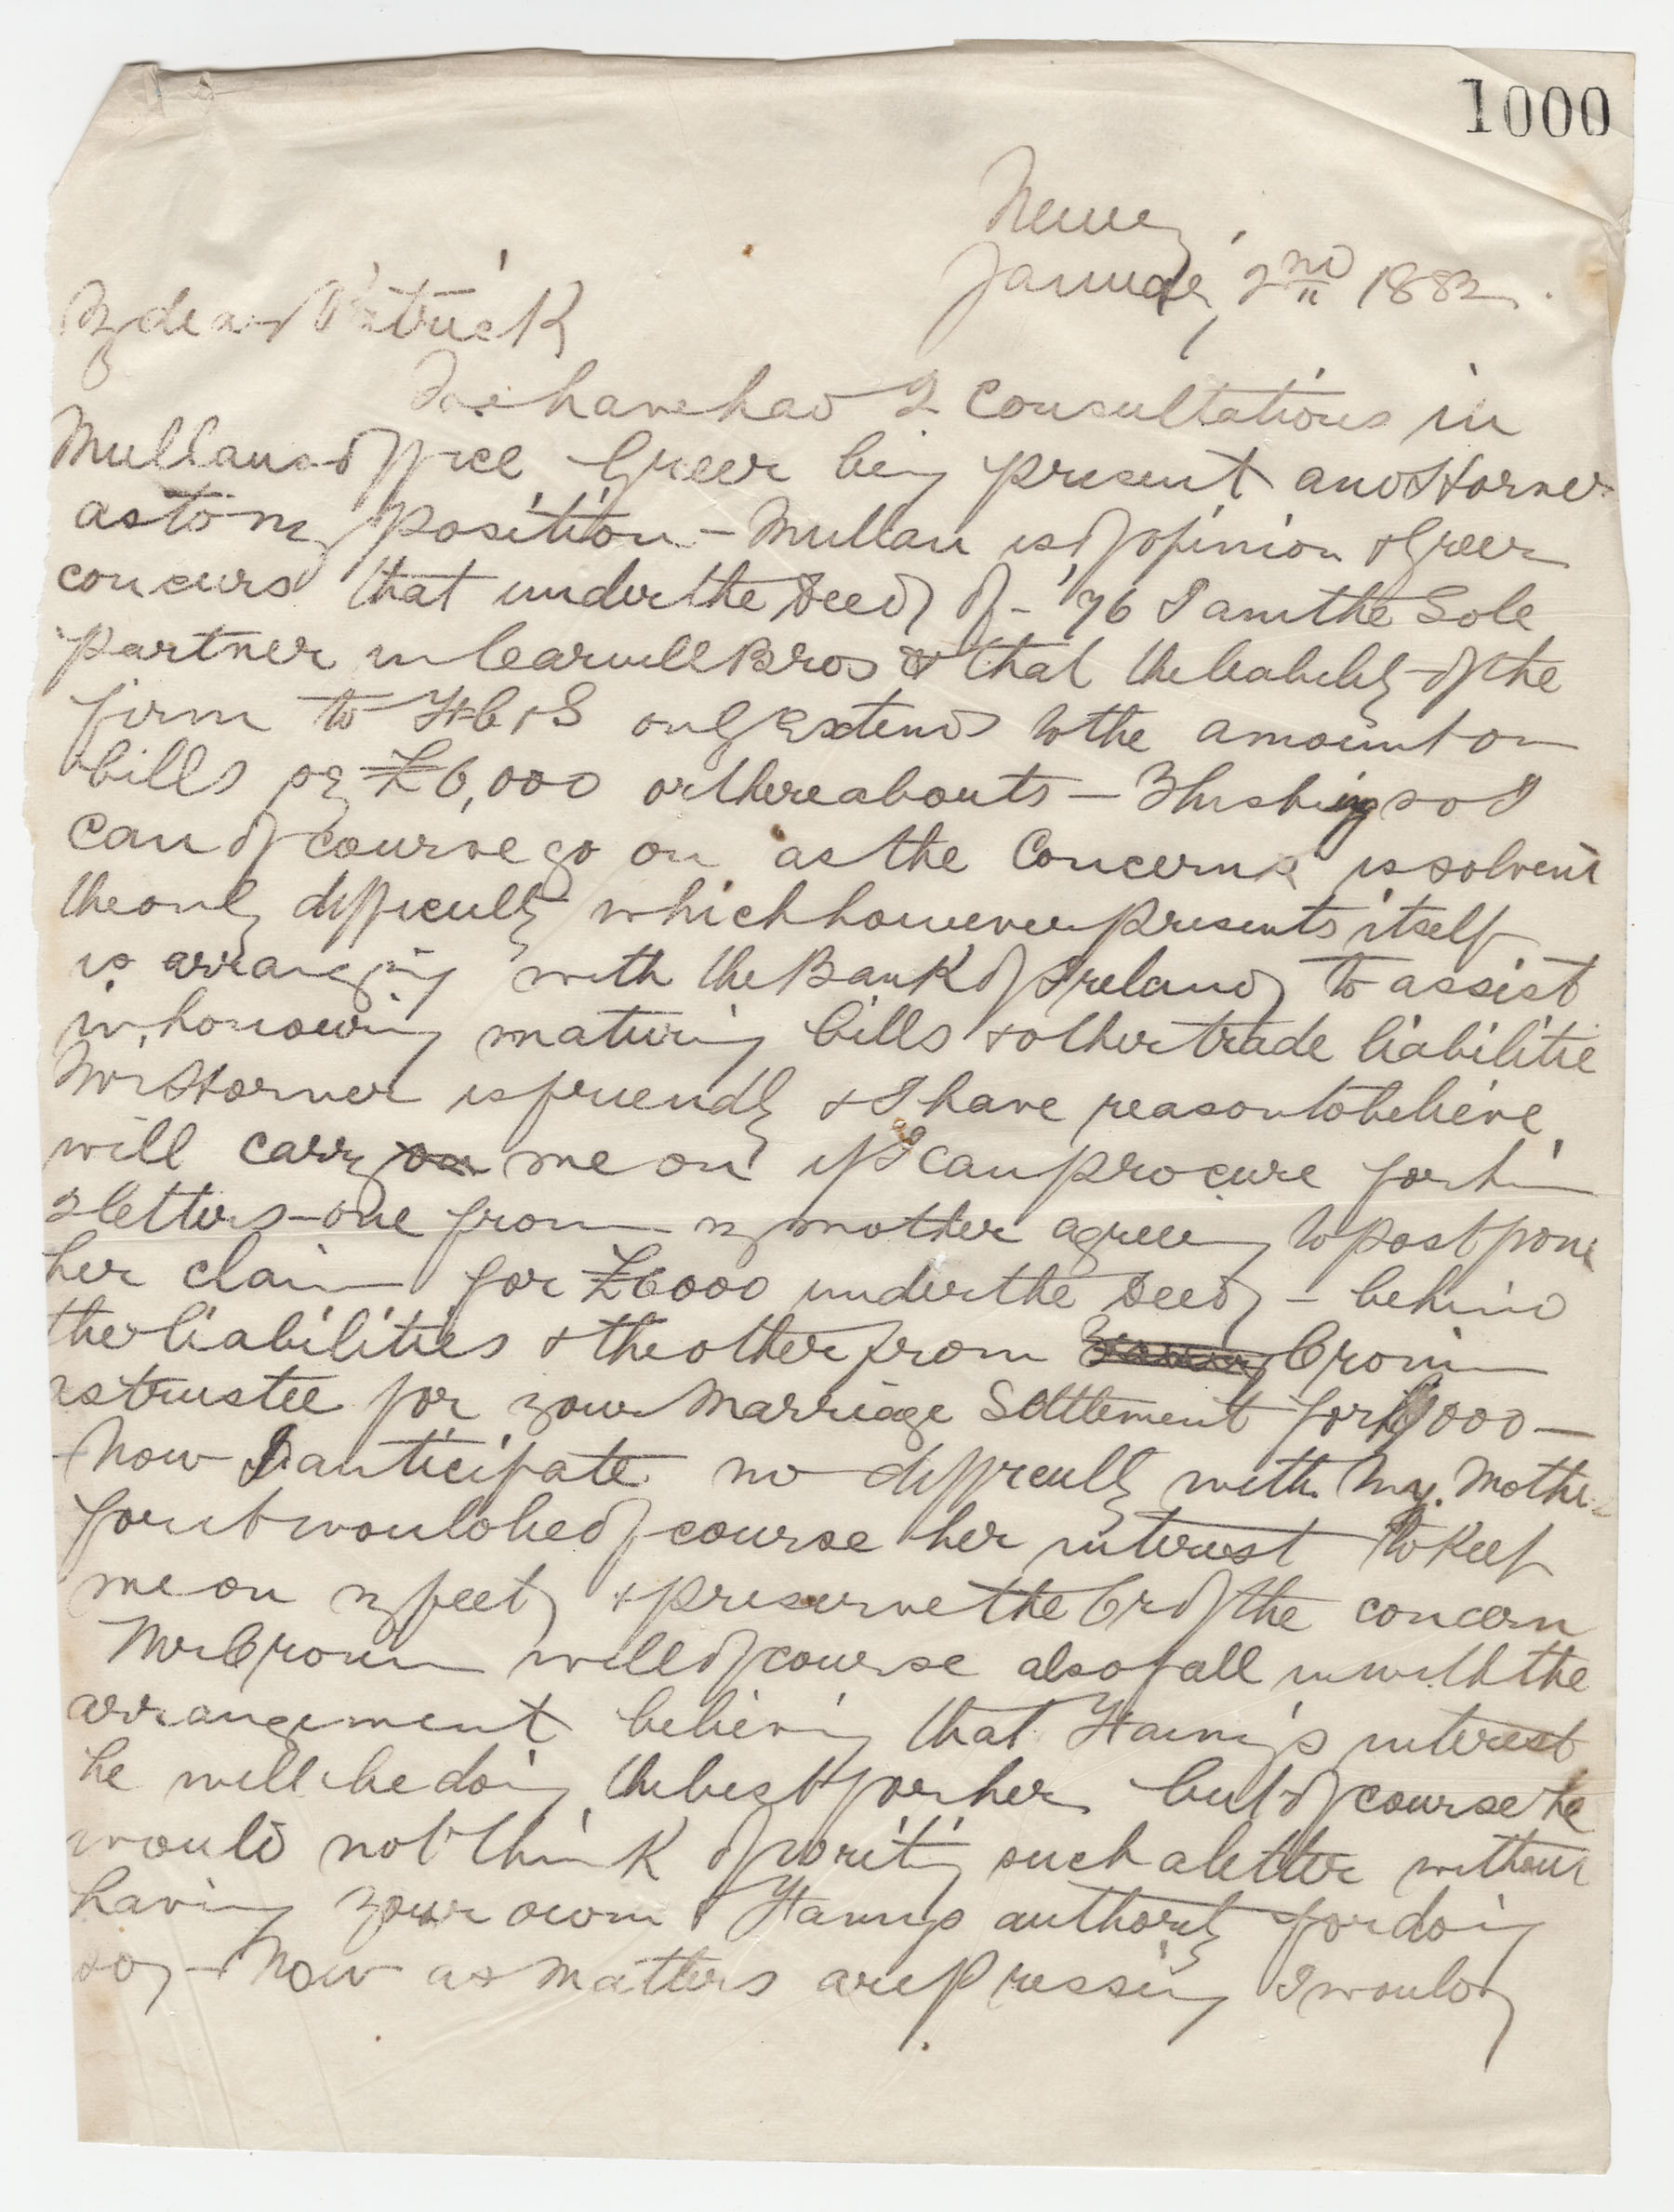 1000
Newry,
January 2nd 1882.
My dear Patrick
We have had 2 Consultations in
Mullans office Greer being present and Horner
as to my position - Mullan is of opinion & Greer
concurs that under the Deed of - '76 I am the Sole
partner in Carvill Bros & that the liability of the
firm to FC & S only extends to the amount on
bills say £6,000 or thereabouts - This being so I
can of course go on as the Concern is solvent
the only difficulty which however presents itself
is arranging with the Bank of Ireland to assist
in honouring maturing bills & other trade liabilitie
Mr Horner is friendly & I have reason to believe
will carry on me on if I can procure for him
2 letters - one from my mother agreeing to postpone
her claim for £6000 under the Deed - behind
the liabilities & the other from Cronin
as trustee for your Marriage Settlement for 000 -
- Now I anticipate no difficulty with My Mother
for it would be of course her interest to keep
me on my feet & preserve the Cr of the concern
Mr Cronin will of course also fall in with the
arrangement believing that Fanny's interest
he will be doing the best for her but of course he
would not think of writing such a letter without
having your own & Fannys authority for doing
so - Now as matters are pressing I would